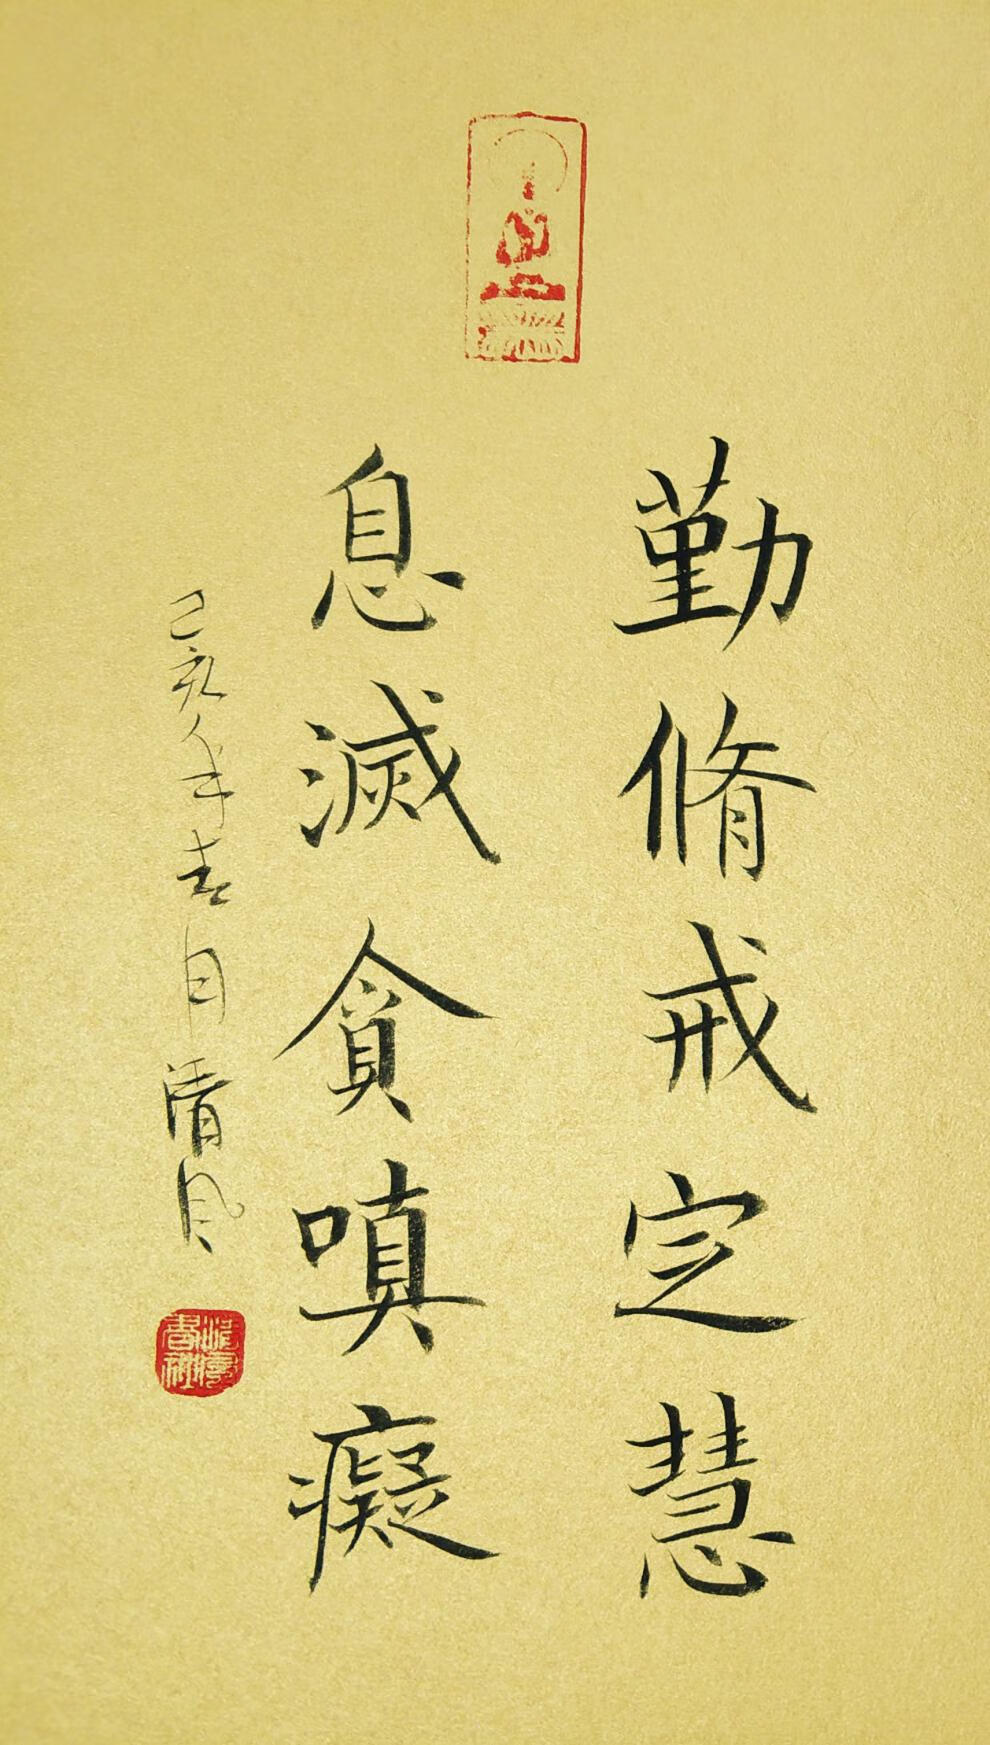 勤脩戒定慧
息滅貪嗔癡
己亥年
清風